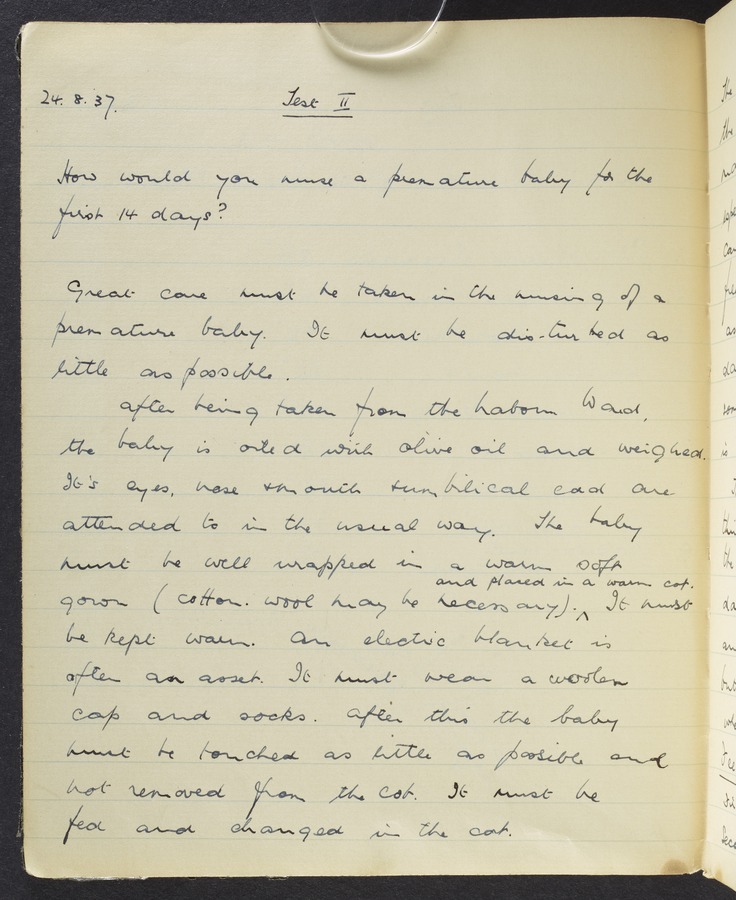 24.8.37. Test II
How would you nurse a premature baby for the
first 14 days?
Great care must be taken in the nursing of a
premature baby. It must be dis-turbed as
little as possible.
after being taken from the Labour Ward,
the baby is oiled with olive oil and weighed.
It's eyes, nose & mouth & umbilical cord are
attended to in the usual way. The baby
must be well wrapped in a warm soft
and placed in a warm cot.
gown (cotton. wool may be necessary). ^ It must
be kept warm. An electric blanket is
often an asset. It must wear a woolen
cap and socks. After this the baby
must be touched as little as possible and
not removed from the cot. It must be
fed and changed in the cot.